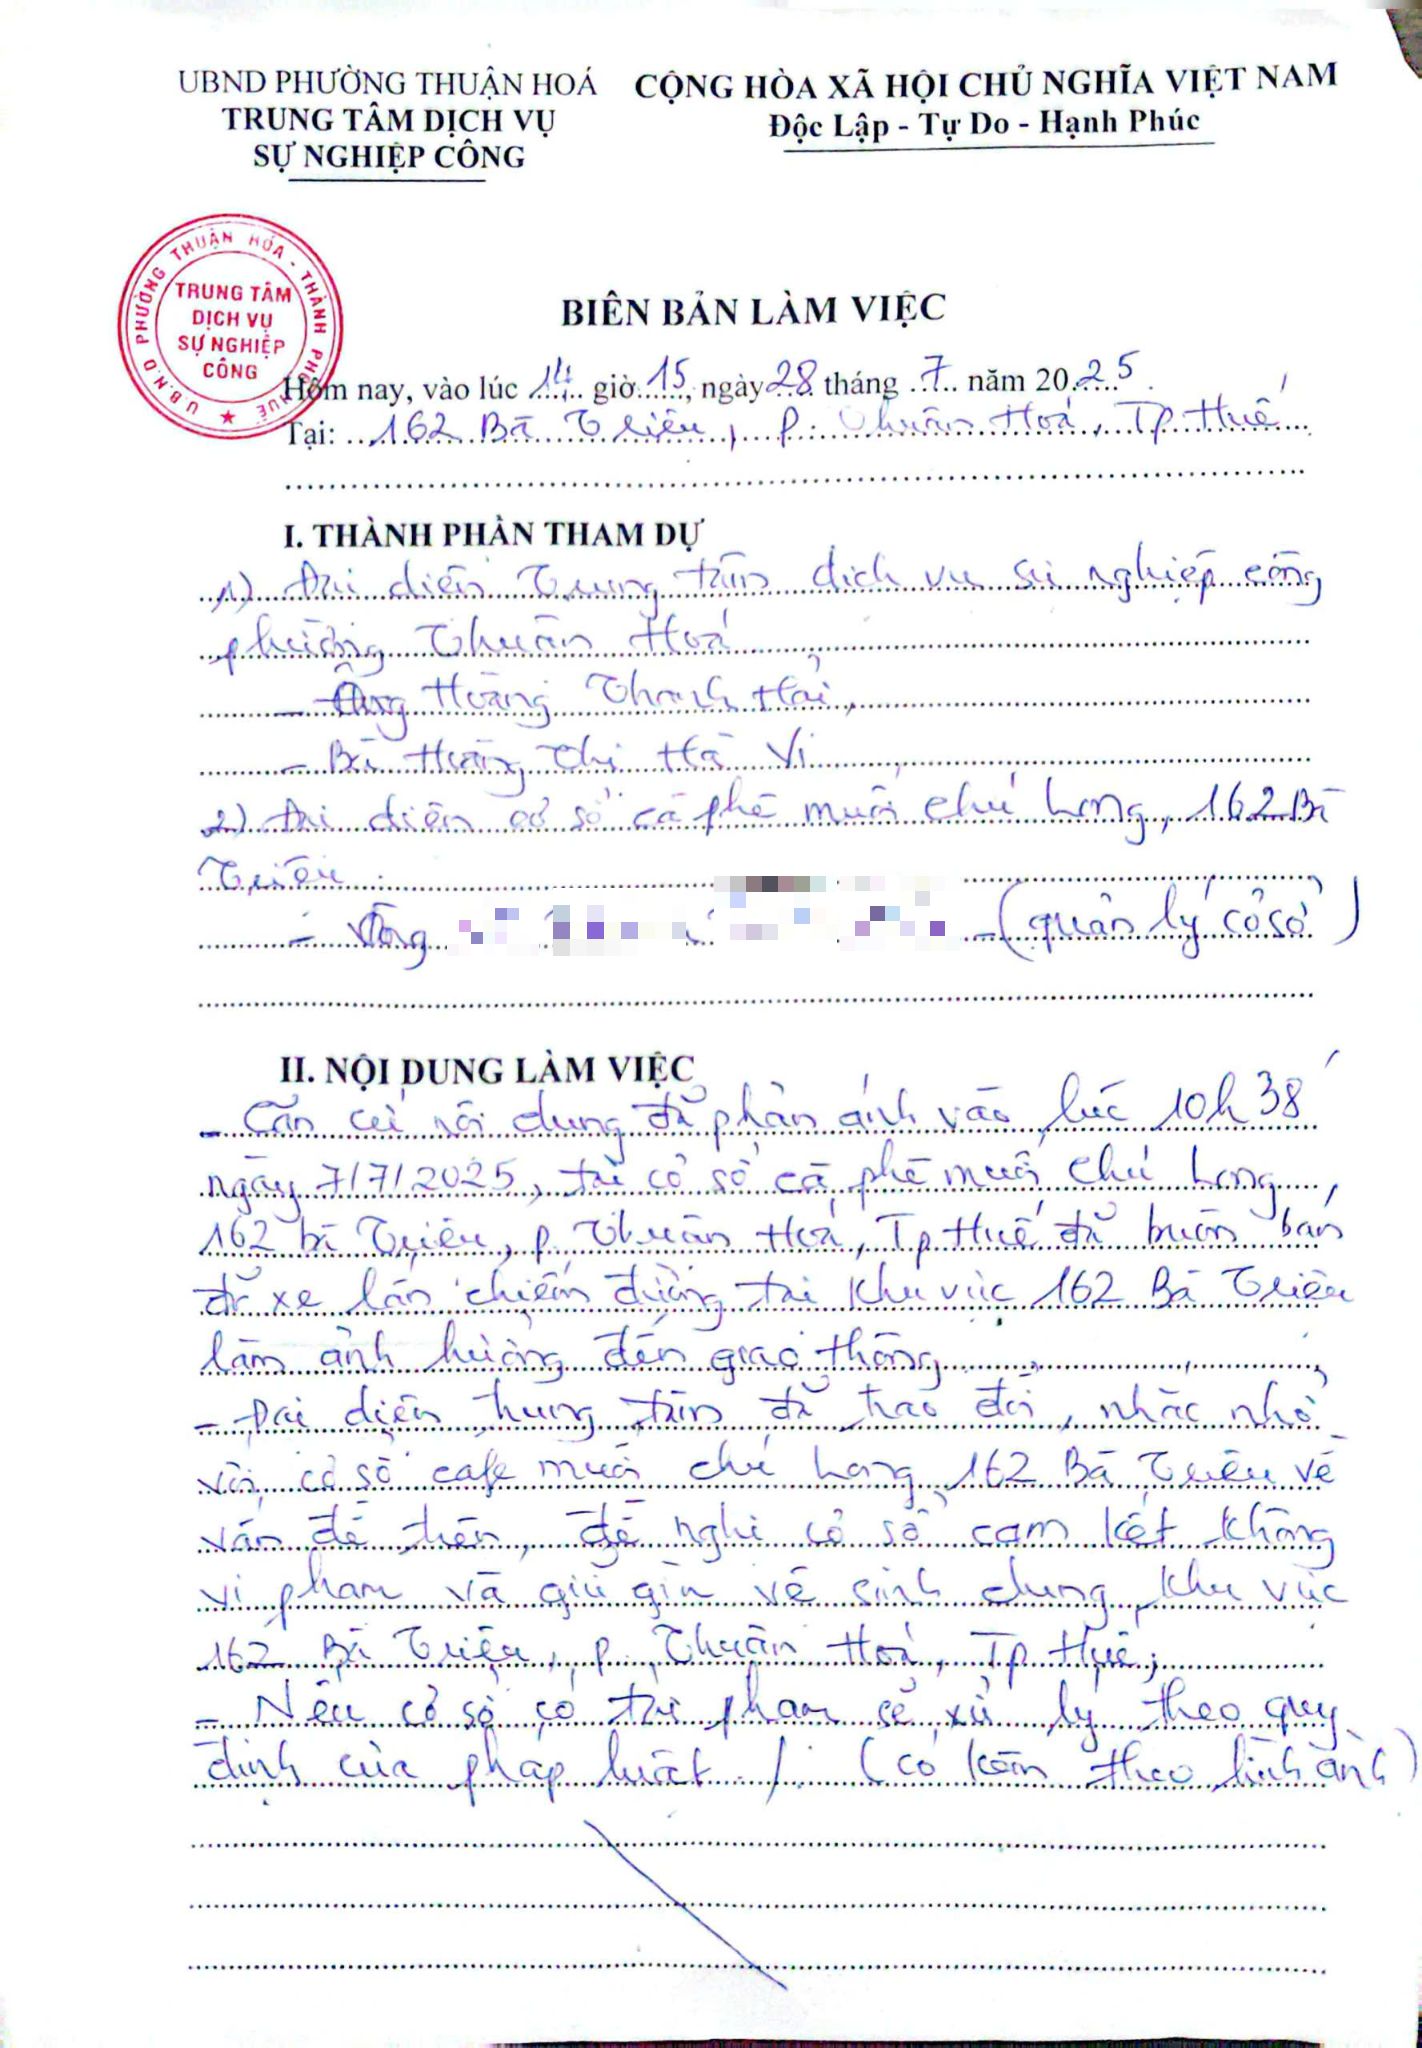 UBND PHƯỜNG THUẬN HOÁ
TRUNG TÂM DỊCH VỤ
SỰ NGHIỆP CÔNG
CỘNG HÒA XÃ HỘI CHỦ NGHĨA VIỆT NAM
Độc Lập - Tự Do - Hạnh Phúc
U.B.N.D PHƯỜNG THUẬN HÓA - THÀNH PHỐ HUẾ
TRUNG TÂM
DỊCH VỤ
SỰ NGHIỆP
CÔNG
BIÊN BẢN LÀM VIỆC
Hôm nay, vào lúc 14 giờ 15, ngày 28 tháng 7 năm 2025.
Tại: 162 Bà Triệu, p. Thuận Hoá, Tp Huế
I. THÀNH PHẦN THAM DỰ
1) Đại diện Trung tâm dịch vụ sự nghiệp công
phường Thuận Hoá
- Ông Hoàng Thanh Hải,
- Bà Hoàng Thị Hà Vi
2) Đại diện cơ sở cà phê muối chú Long, 162 Bà
Triệu.
- Ông - (quản lý cơ sở)
II. NỘI DUNG LÀM VIỆC
- Căn cứ nội dung đã phản ánh vào lúc 10h38
ngày 7/7/2025, tại cơ sở cà phê muối chú Long,
162 bà Triệu, p. Thuận Hoá, Tp Huế đã buôn bán
để xe lấn chiếm đường tại khu vực 162 Bà Triệu
làm ảnh hưởng đến giao thông
- Đại diện trung tâm đã trao đổi, nhắc nhở
với cơ sở cafe muối chú Long 162 Bà Triệu về
vấn đề trên, đề nghị cơ sở cam kết không
vi phạm và giữ gìn vệ sinh chung khu vực
162 Bà Triệu, p. Thuận Hoá, Tp Huế;
- Nếu cơ sở có tái phạm sẽ xử lý theo quy
định của pháp luật ./. (có kèm theo hình ảnh)